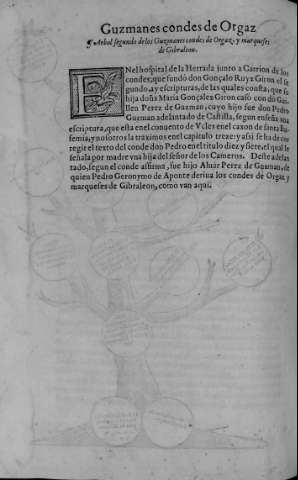 Guzmanes condes de Orgaz
Arbol segundo de los Guzmanes condes de Orgaz, y marqueses
de Gibraleon.
EN el hospital de la Herrada junto a Carrion de los
condes, que fundó don Gonçalo Ruyz Giron el se
gundo, ay escripturas, de las quales consta, que su
hija doña Maria Gonçales Giron casó con don Gui
llen Perez de Guzman, cuyo hijo fue don Pedro
Guzman adelantado de Castilla, segun enseña vna
escriptura, que esta en el conuento de Vcles en el caxon de santa Eu
femia, y nosotros la traximos en el capitulo treze: y assi se ha de cor
regir el texto del conde don Pedro en el titulo diez y siete, el qual le
señala por madre vna hija del señor de los Cameros. Deste adelan
tado, segun el conde affirma, fue hijo Aluar Perez de Guzman, de
quien Pedro Geronymo de Aponte deriua los condes de Orgaz y
marqueses de Gibraleon, como van aqui.